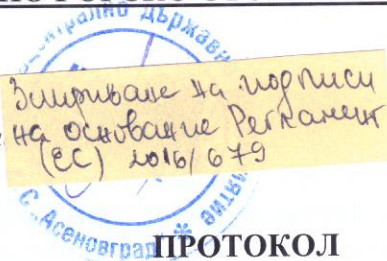 трално държав
Закриване на подписи
на основание Регламент
(ЕС) 2016/679
Асеновград
ПРОТОКОЛ